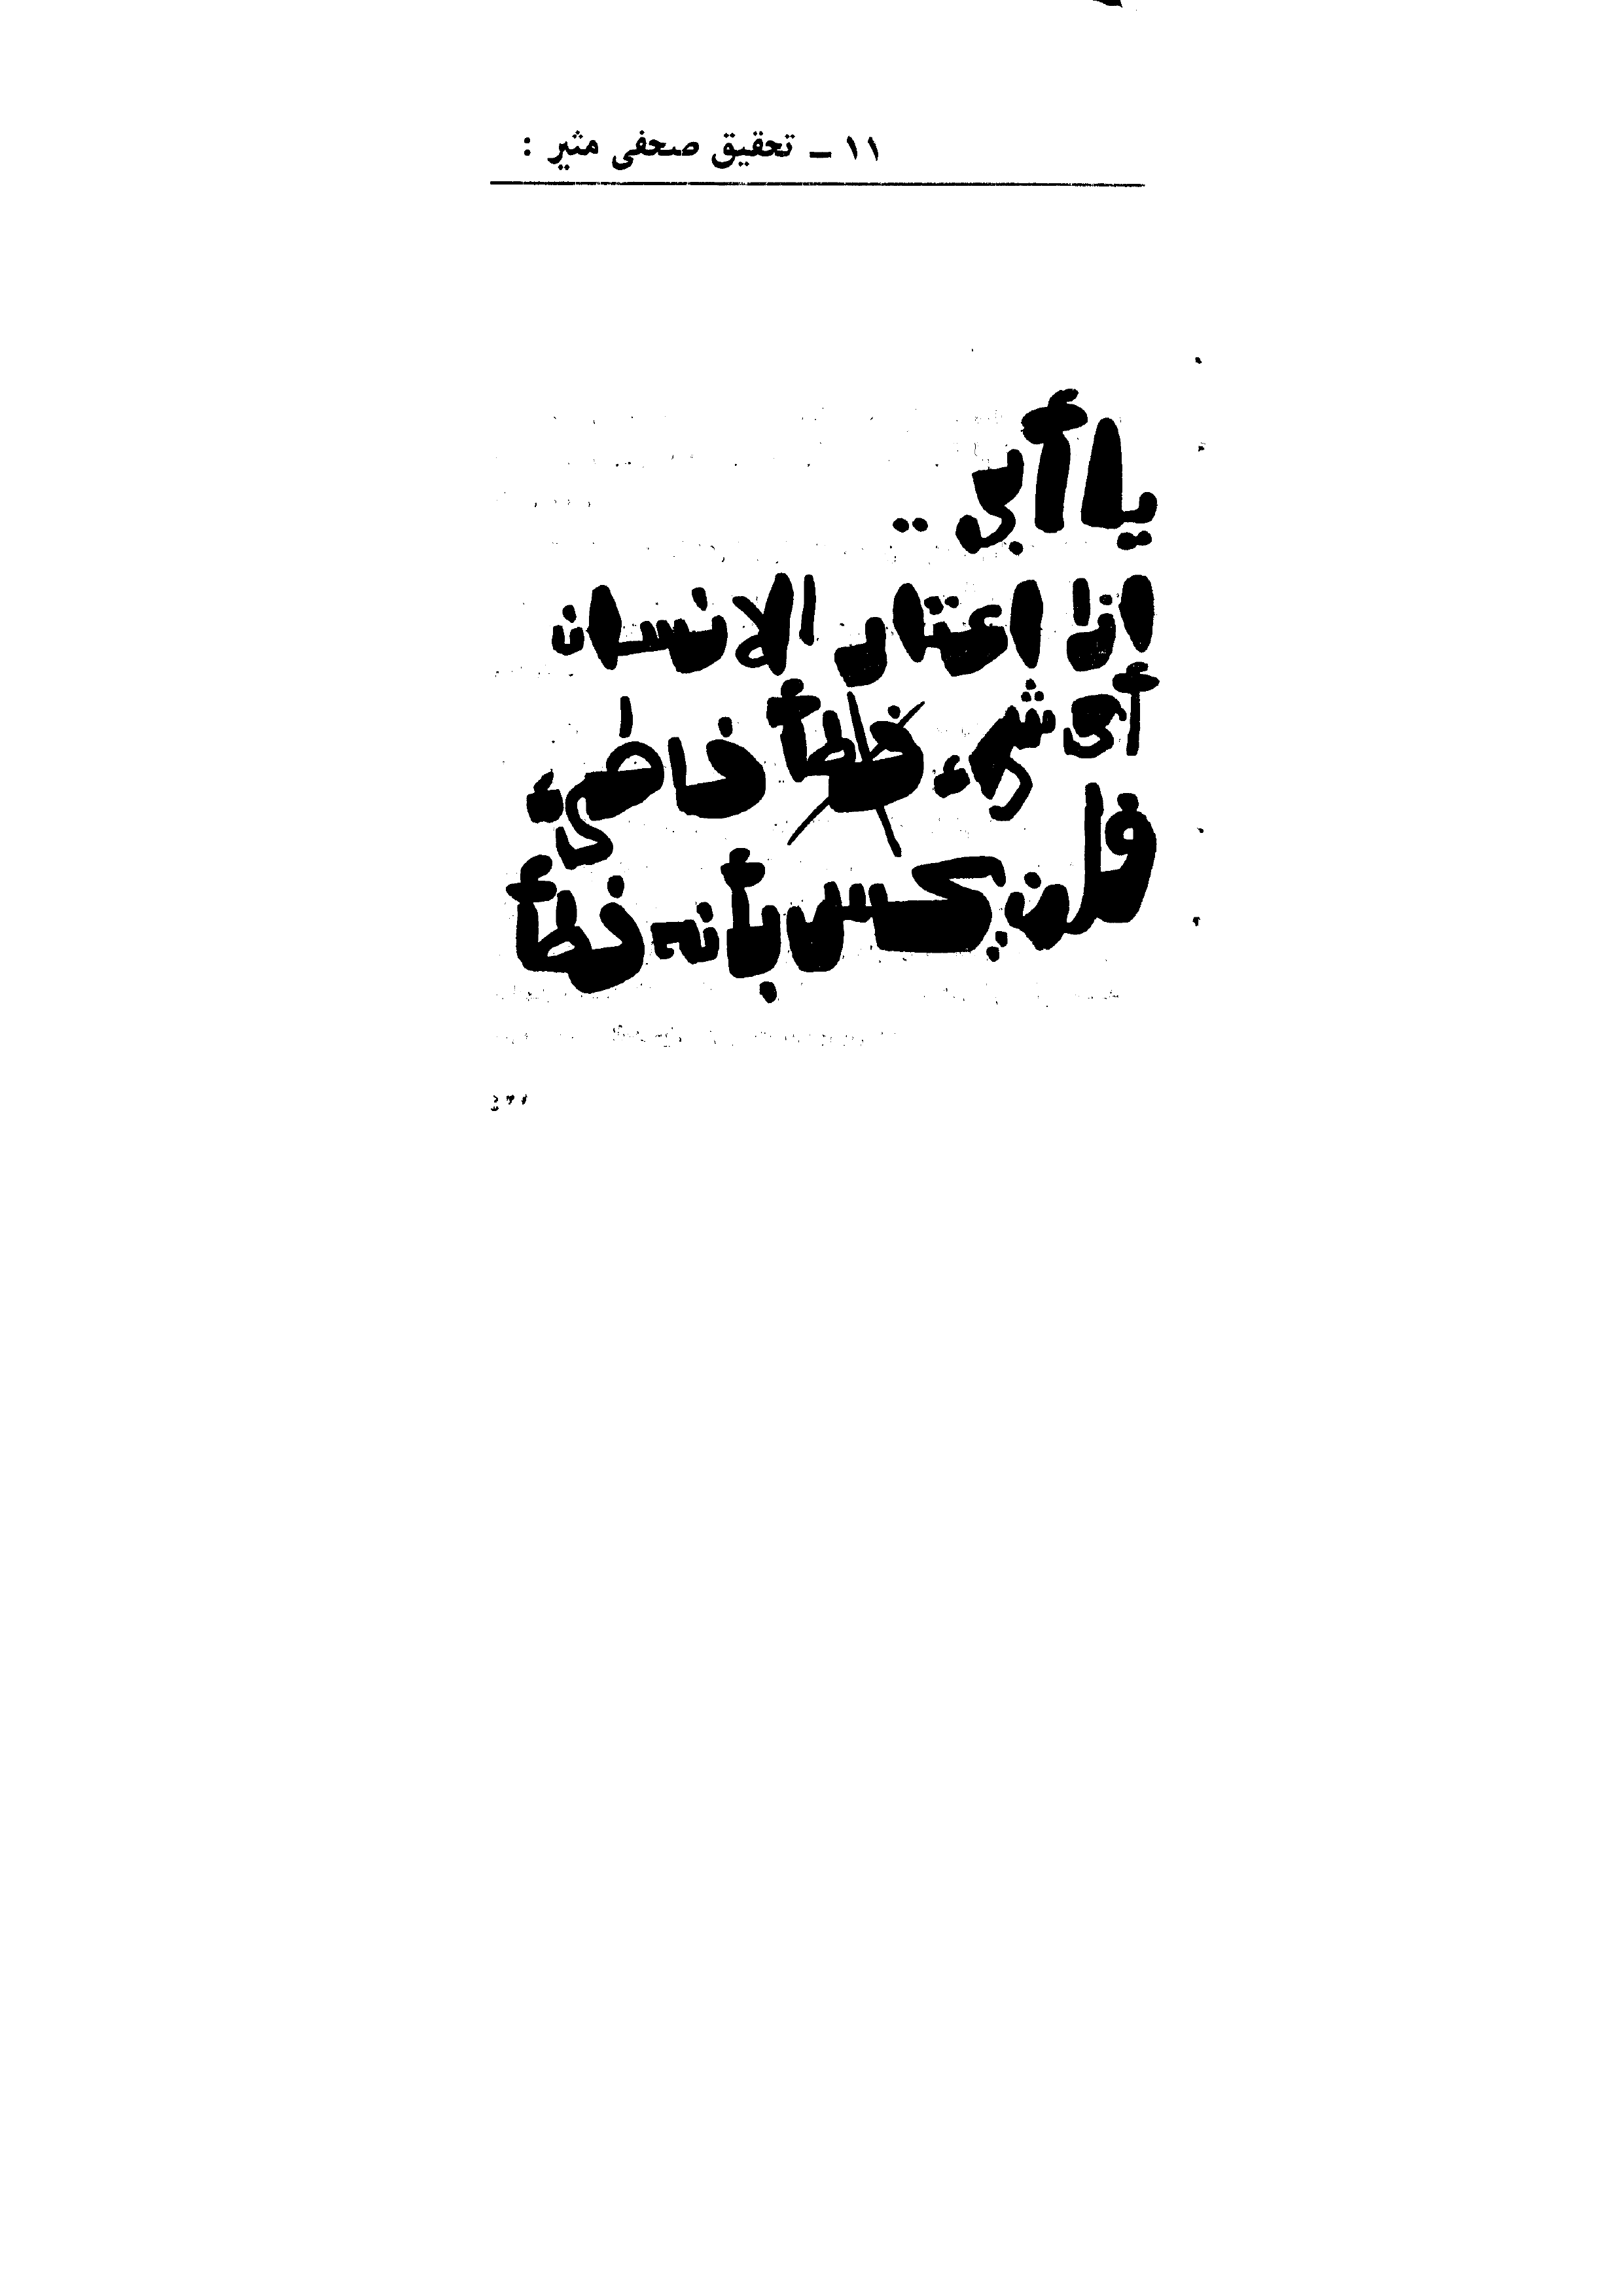 ١١ ــ تحقيق صحفى مثير :
يا أبى ..
اذا اعتاد الانسان
أى شىء خطأ خاطىء
فلن يحس بأنه خطأ